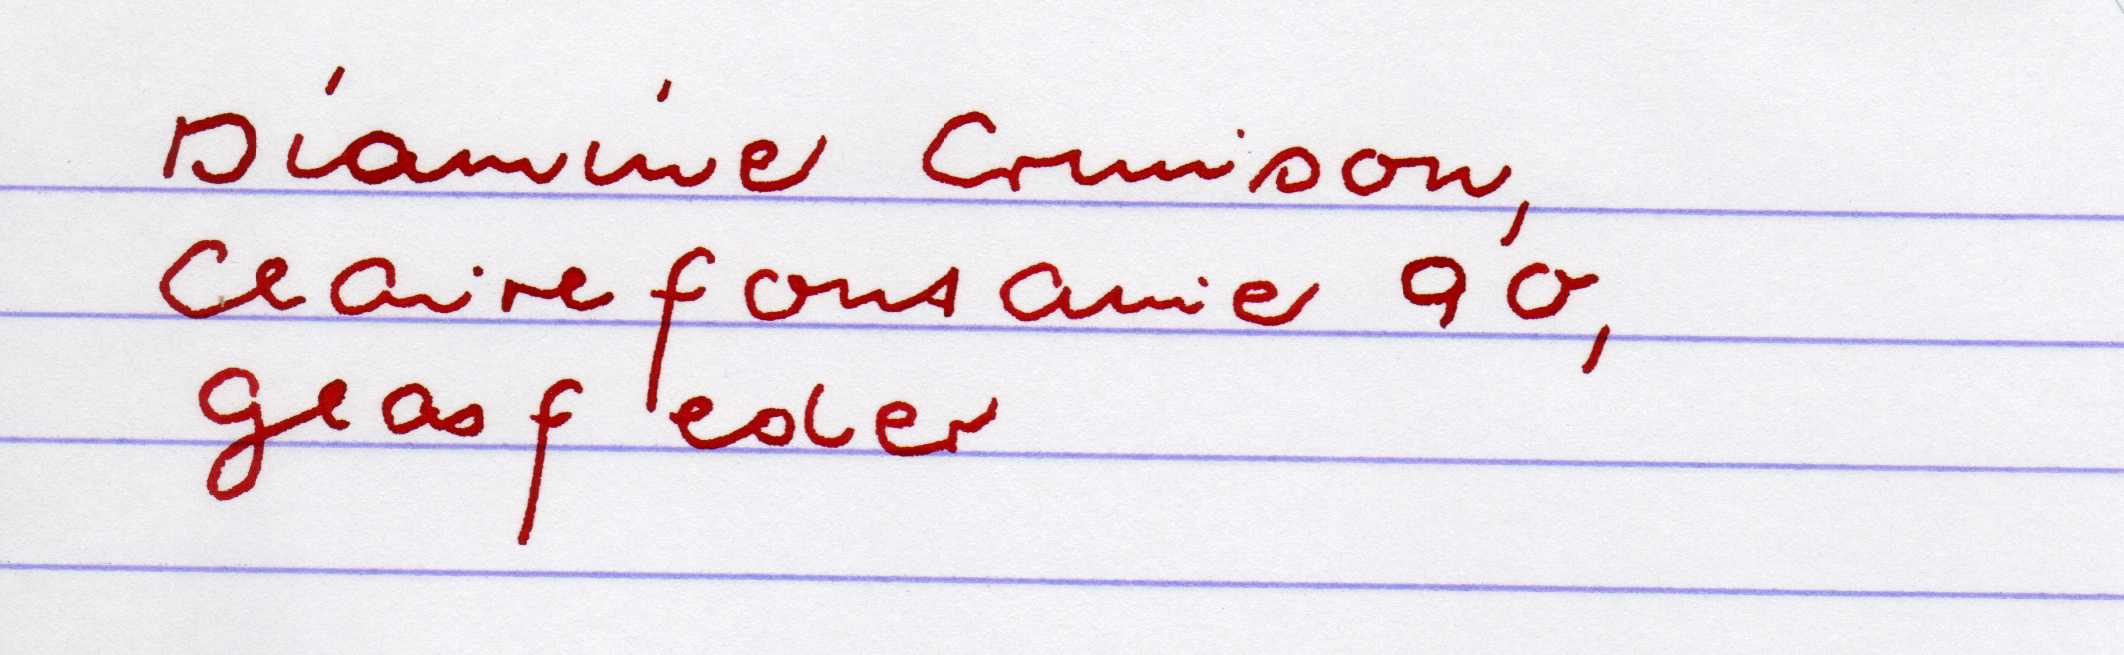 Diamine Crimson,
Clairefontaine 90,
glasfeder